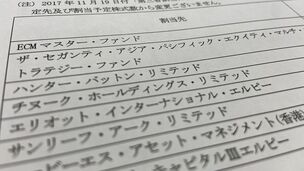 (注) 2017年11月19日付「第三者割当
定先及び割当予定株式数から変更ございません。
割当先
ECMマスター・ファンド
ザ・セガンティ・アジア・パシフィック・エクイティ・マルチ
トラテジー・ファンド
ハンター・バットン・リミテッド
チヌーク・ホールディングス・リミテッド
エリオット・インターナショナル・エルピー
サンリーフ・アーク・リミテッド
ービーエス・アセット・マネジメント(香港
キャピタルIIIエルピー